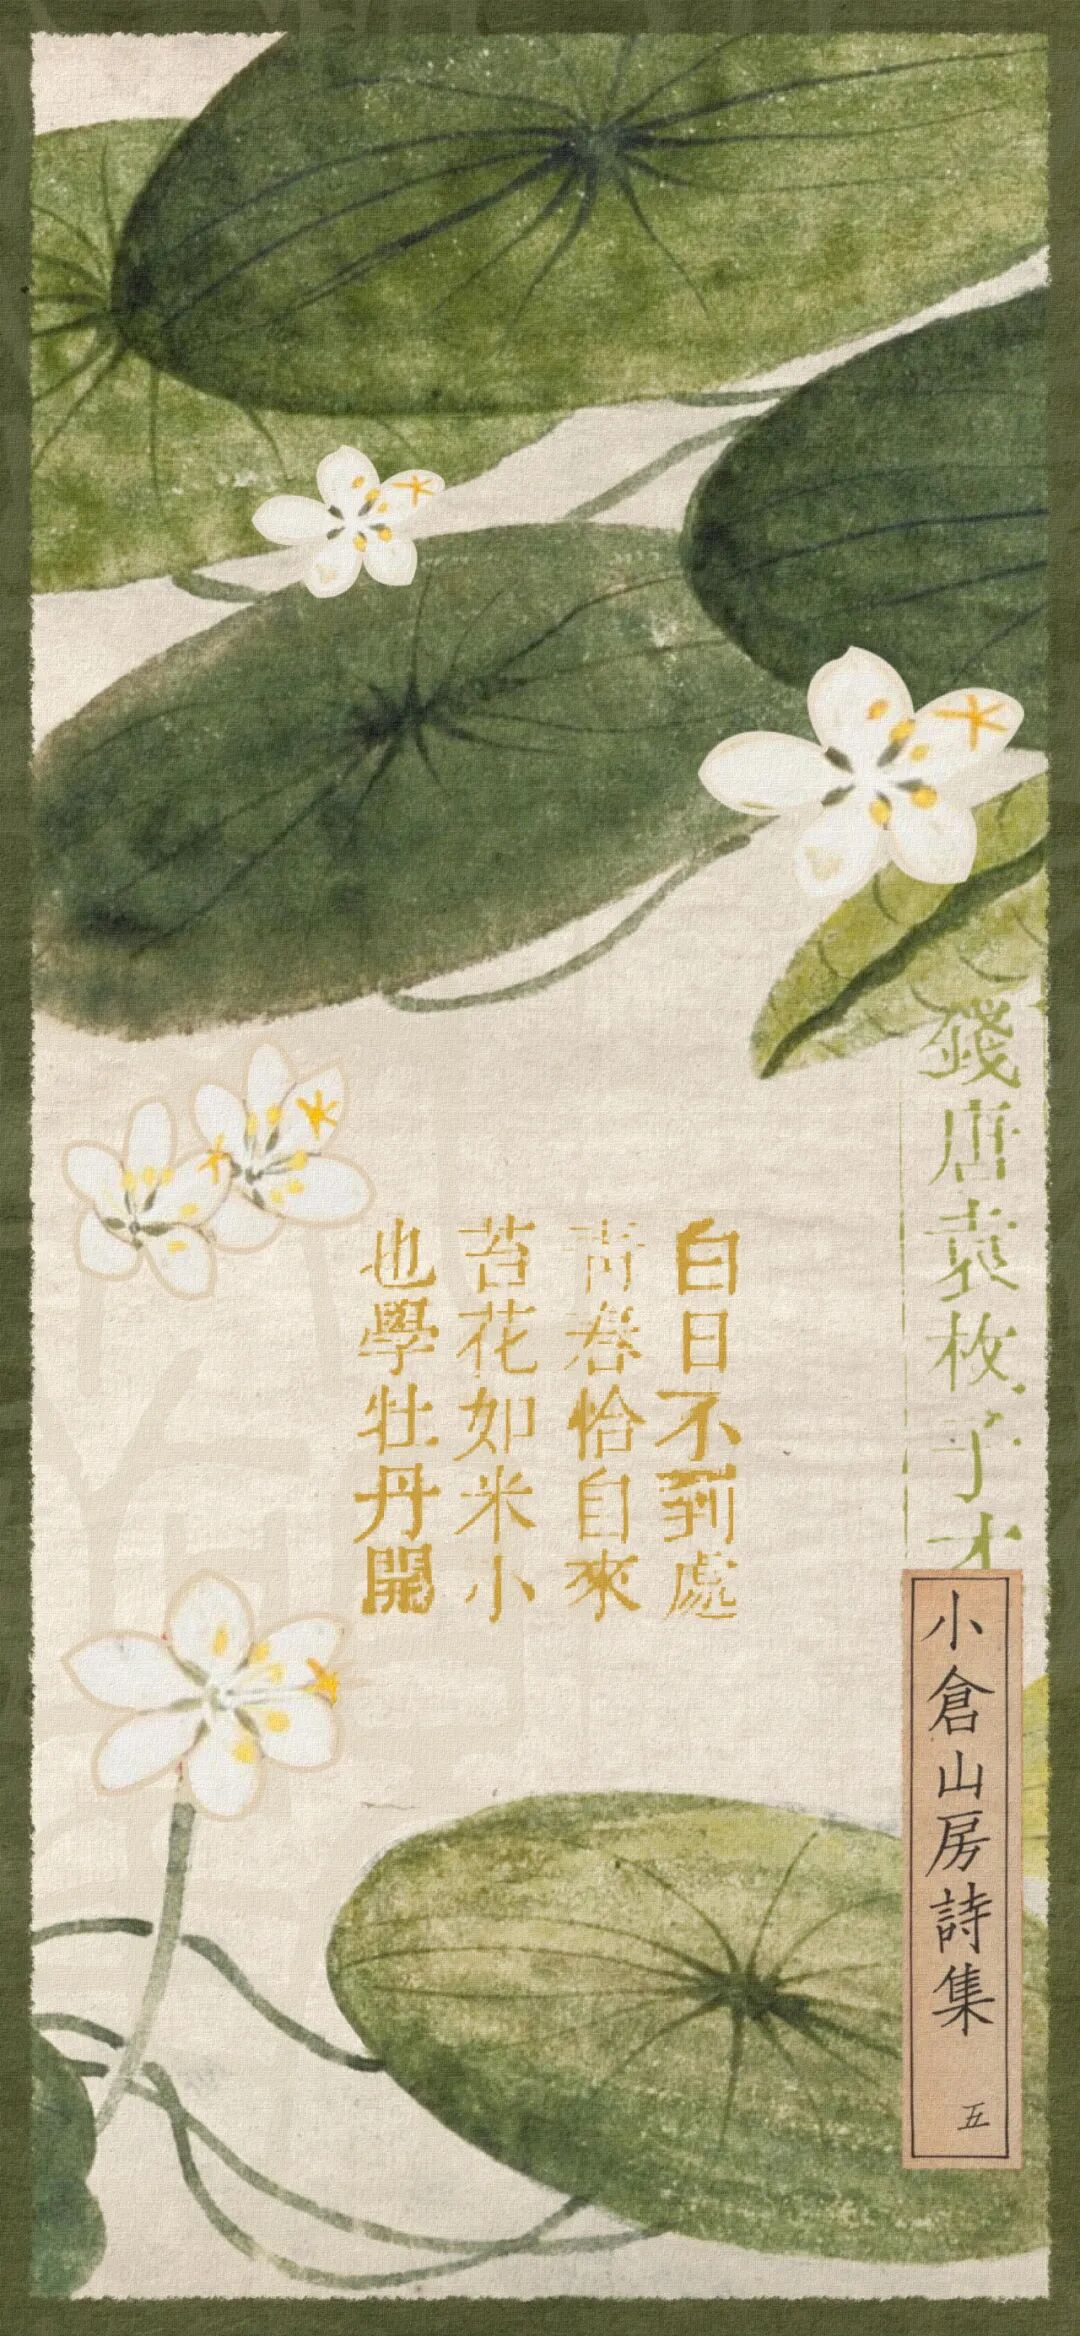 錢唐袁枚子才
小倉山房詩集
五
白日不到處
青春恰自來
苔花如米小
也學牡丹開